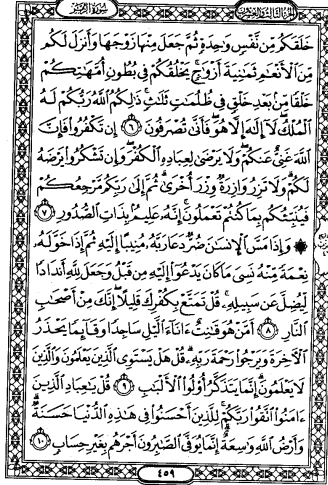 الجزء الثالث والعشرون
سورة الزمر
خَلَقَكُم مِّن نَّفْسٍ وَٰحِدَةٍ ثُمَّ جَعَلَ مِنْهَا زَوْجَهَا وَأَنزَلَ لَكُم
مِّنَ ٱلْأَنْعَٰمِ ثَمَٰنِيَةَ أَزْوَٰجٍ ۚ يَخْلُقُكُمْ فِي بُطُونِ أُمَّهَٰتِكُمْ
خَلْقًا مِّنۢ بَعْدِ خَلْقٍ فِي ظُلُمَٰتٍ ثَلَٰثٍ ۚ ذَٰلِكُمُ ٱللَّهُ رَبُّكُمْ لَهُ
ٱلْمُلْكُ ۖ لَآ إِلَٰهَ إِلَّا هُوَ ۖ فَأَنَّىٰ تُصْرَفُونَ ٦ إِن تَكْفُرُوا۟ فَإِنَّ
ٱللَّهَ غَنِيٌّ عَنكُمْ ۖ وَلَا يَرْضَىٰ لِعِبَادِهِ ٱلْكُفْرَ ۖ وَإِن تَشْكُرُوا۟ يَرْضَهُ
لَكُمْ ۗ وَلَا تَزِرُ وَازِرَةٌ وِزْرَ أُخْرَىٰ ۗ ثُمَّ إِلَىٰ رَبِّكُم مَّرْجِعُكُمْ
فَيُنَبِّئُكُم بِمَا كُنتُمْ تَعْمَلُونَ ۚ إِنَّهُۥ عَلِيمٌۢ بِذَاتِ ٱلصُّدُورِ ٧
۞ وَإِذَا مَسَّ ٱلْإِنسَٰنَ ضُرٌّ دَعَا رَبَّهُۥ مُنِيبًا إِلَيْهِ ثُمَّ إِذَا خَوَّلَهُۥ
نِعْمَةً مِّنْهُ نَسِيَ مَا كَانَ يَدْعُوٓا۟ إِلَيْهِ مِن قَبْلُ وَجَعَلَ لِلَّهِ أَندَادًا
لِّيُضِلَّ عَن سَبِيلِهِۦ ۚ قُلْ تَمَتَّعْ بِكُفْرِكَ قَلِيلًا ۖ إِنَّكَ مِنْ أَصْحَٰبِ
ٱلنَّارِ ٨ أَمَّنْ هُوَ قَٰنِتٌ ءَانَآءَ ٱلَّيْلِ سَاجِدًا وَقَآئِمًا يَحْذَرُ
ٱلْآخِرَةَ وَيَرْجُوا۟ رَحْمَةَ رَبِّهِۦ ۗ قُلْ هَلْ يَسْتَوِي ٱلَّذِينَ يَعْلَمُونَ وَٱلَّذِينَ
لَا يَعْلَمُونَ ۗ إِنَّمَا يَتَذَكَّرُ أُو۟لُوا۟ ٱلْأَلْبَٰبِ ٩ قُلْ يَٰعِبَادِ ٱلَّذِينَ
ءَامَنُوا۟ ٱتَّقُوا۟ رَبَّكُمْ ۚ لِلَّذِينَ أَحْسَنُوا۟ فِي هَٰذِهِ ٱلدُّنْيَا حَسَنَةٌ ۗ
وَأَرْضُ ٱللَّهِ وَٰسِعَةٌ ۗ إِنَّمَا يُوَفَّى ٱلصَّٰبِرُونَ أَجْرَهُم بِغَيْرِ حِسَابٍ ١٠
٤٥٩